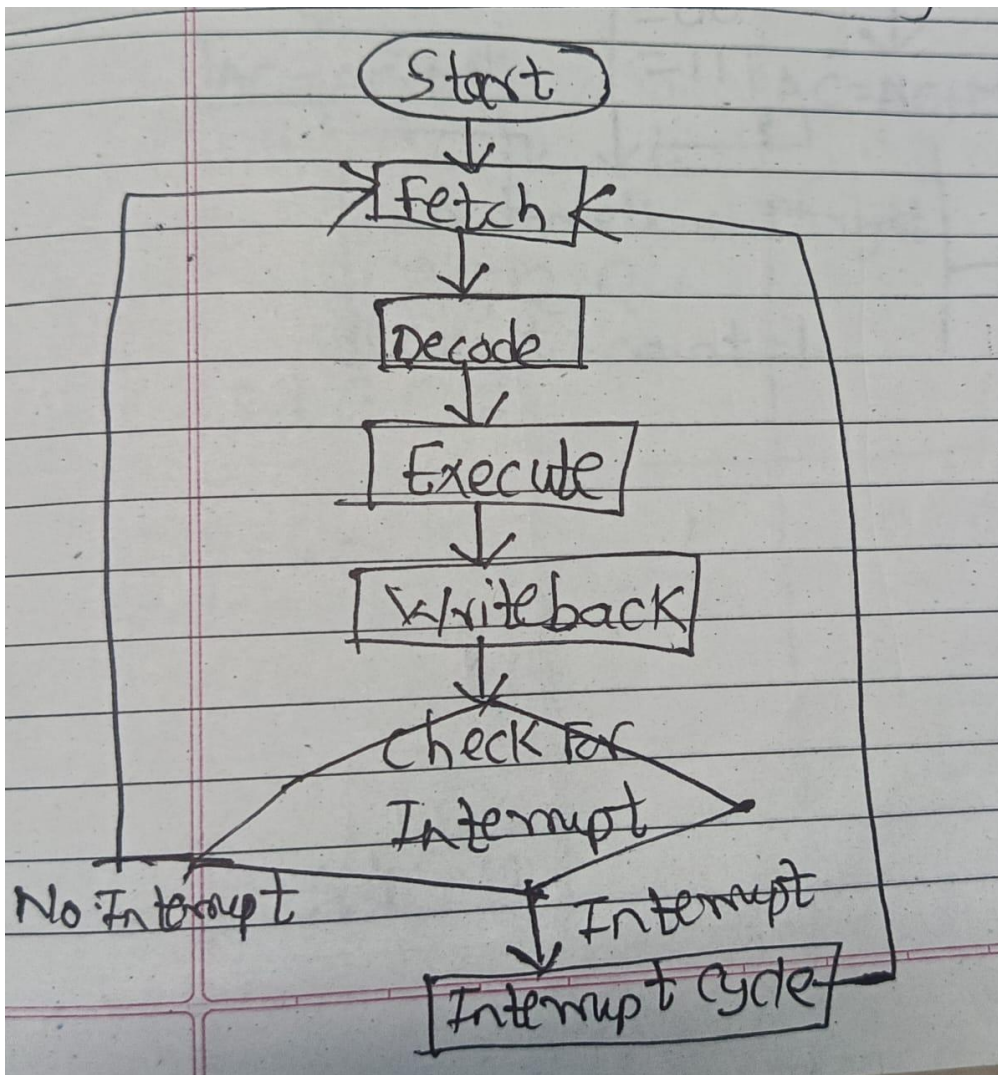 Start
Fetch
Decode
Execute
Writeback
Check For
Interrupt
No Interrupt
Interrupt
Interrupt Cycle